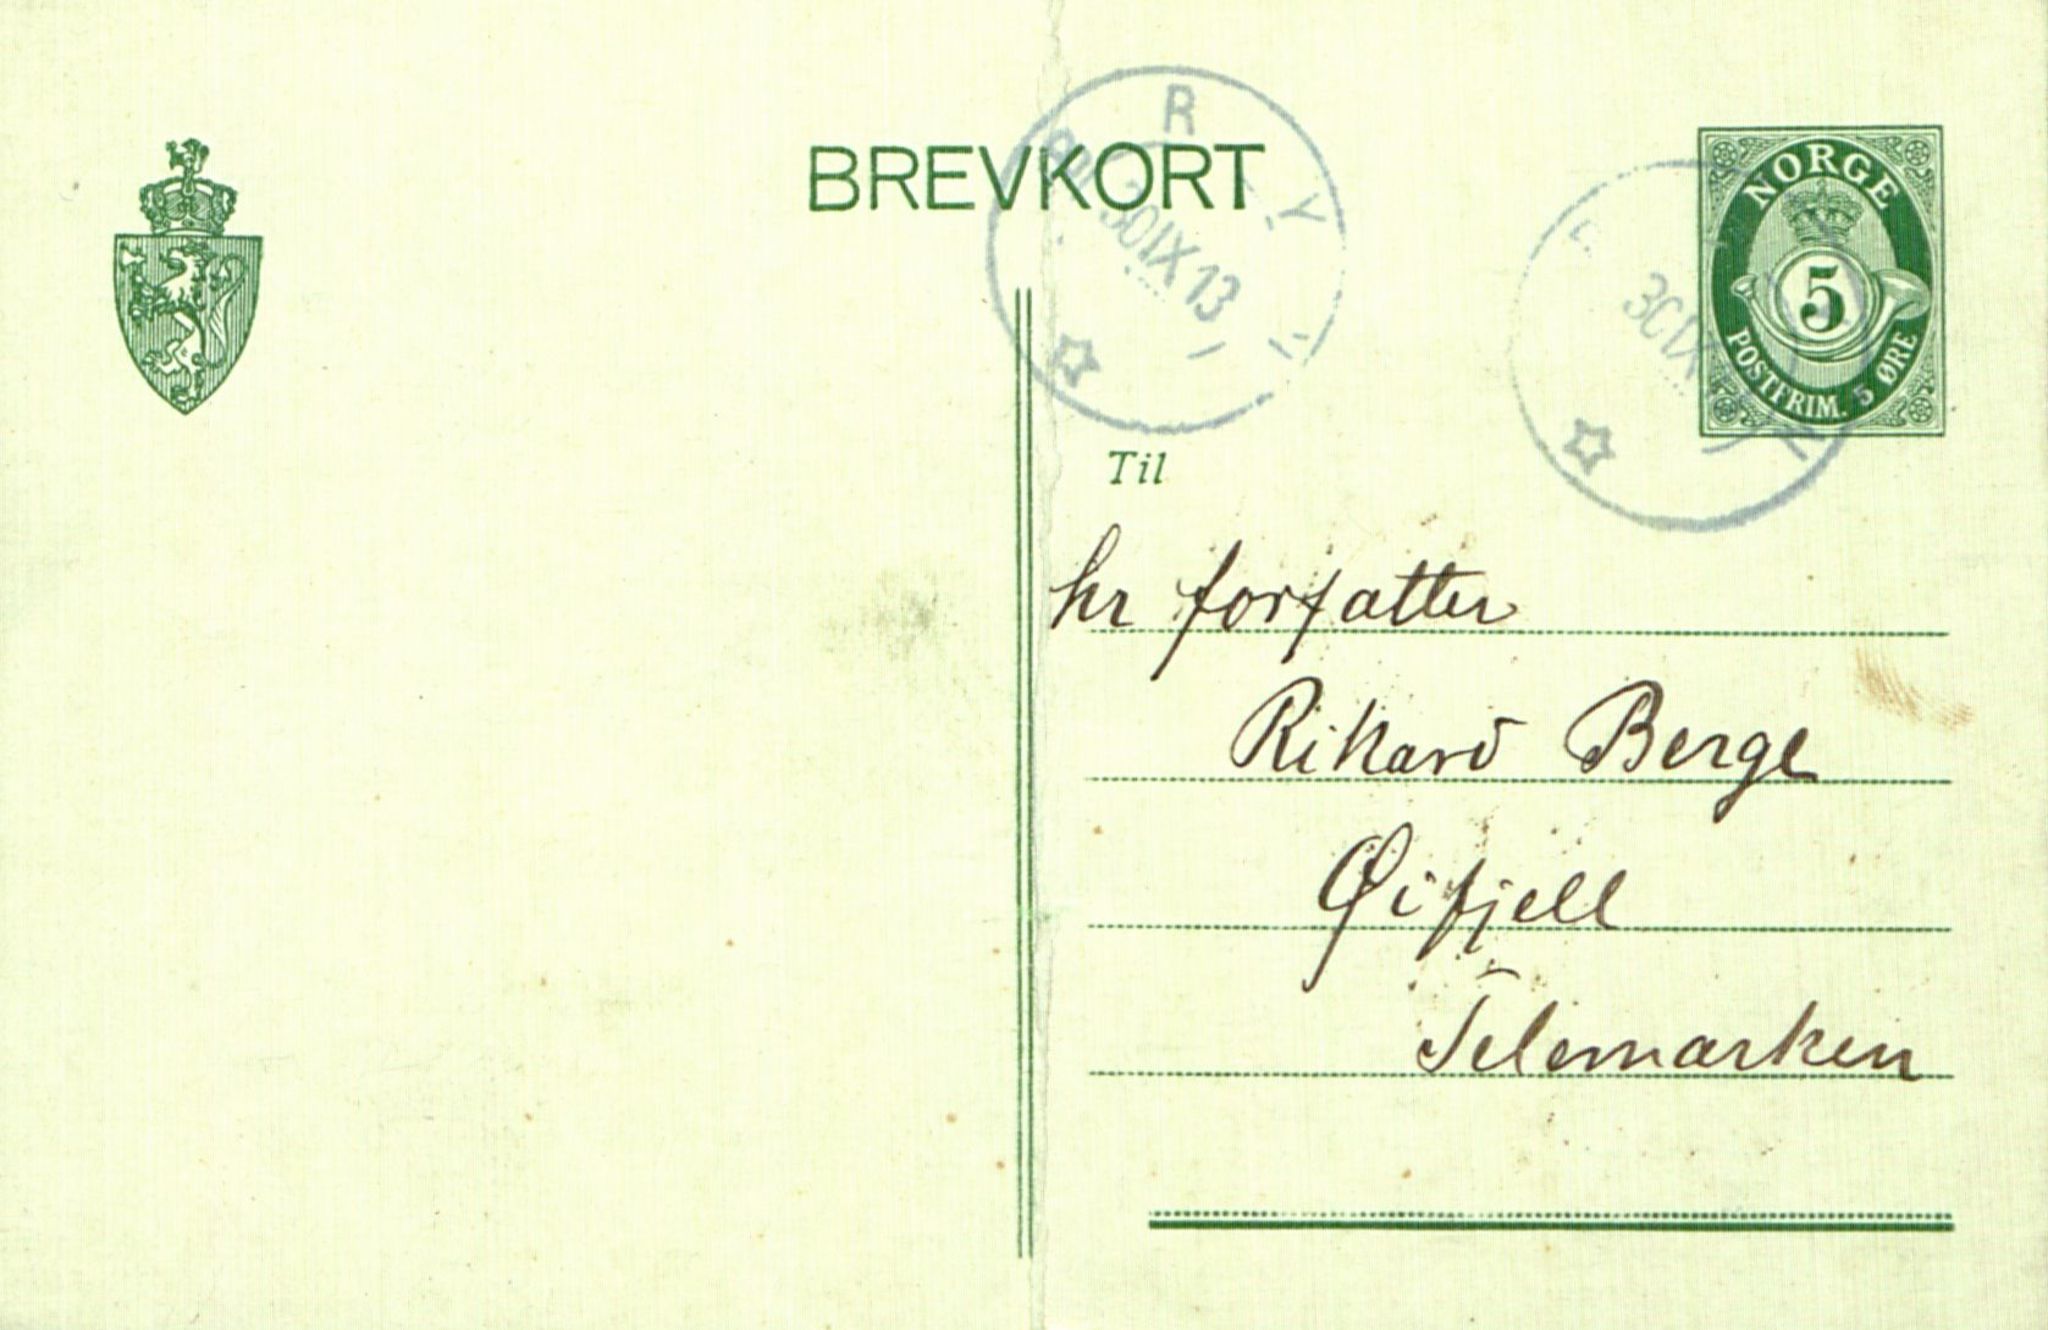 BREVKORT
30 IX 13
NORGE
5
POSTFRIM. 5 ØRE
30 IX
Til
hr forfatter
Rikard Berge
Øifjell
Telemarken